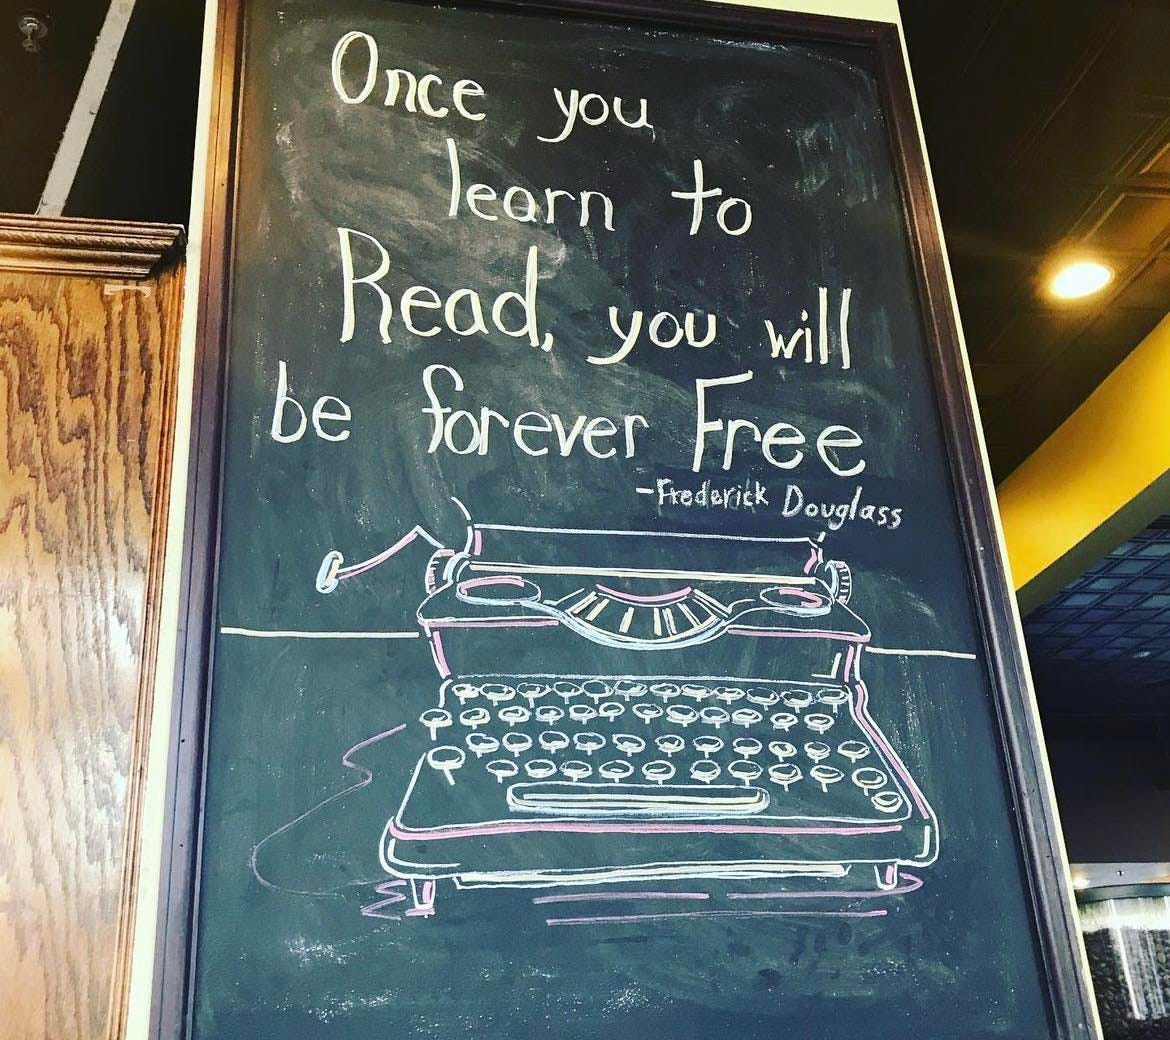 Once you
learn to
Read, you will
be forever Free
-Frederick Douglass